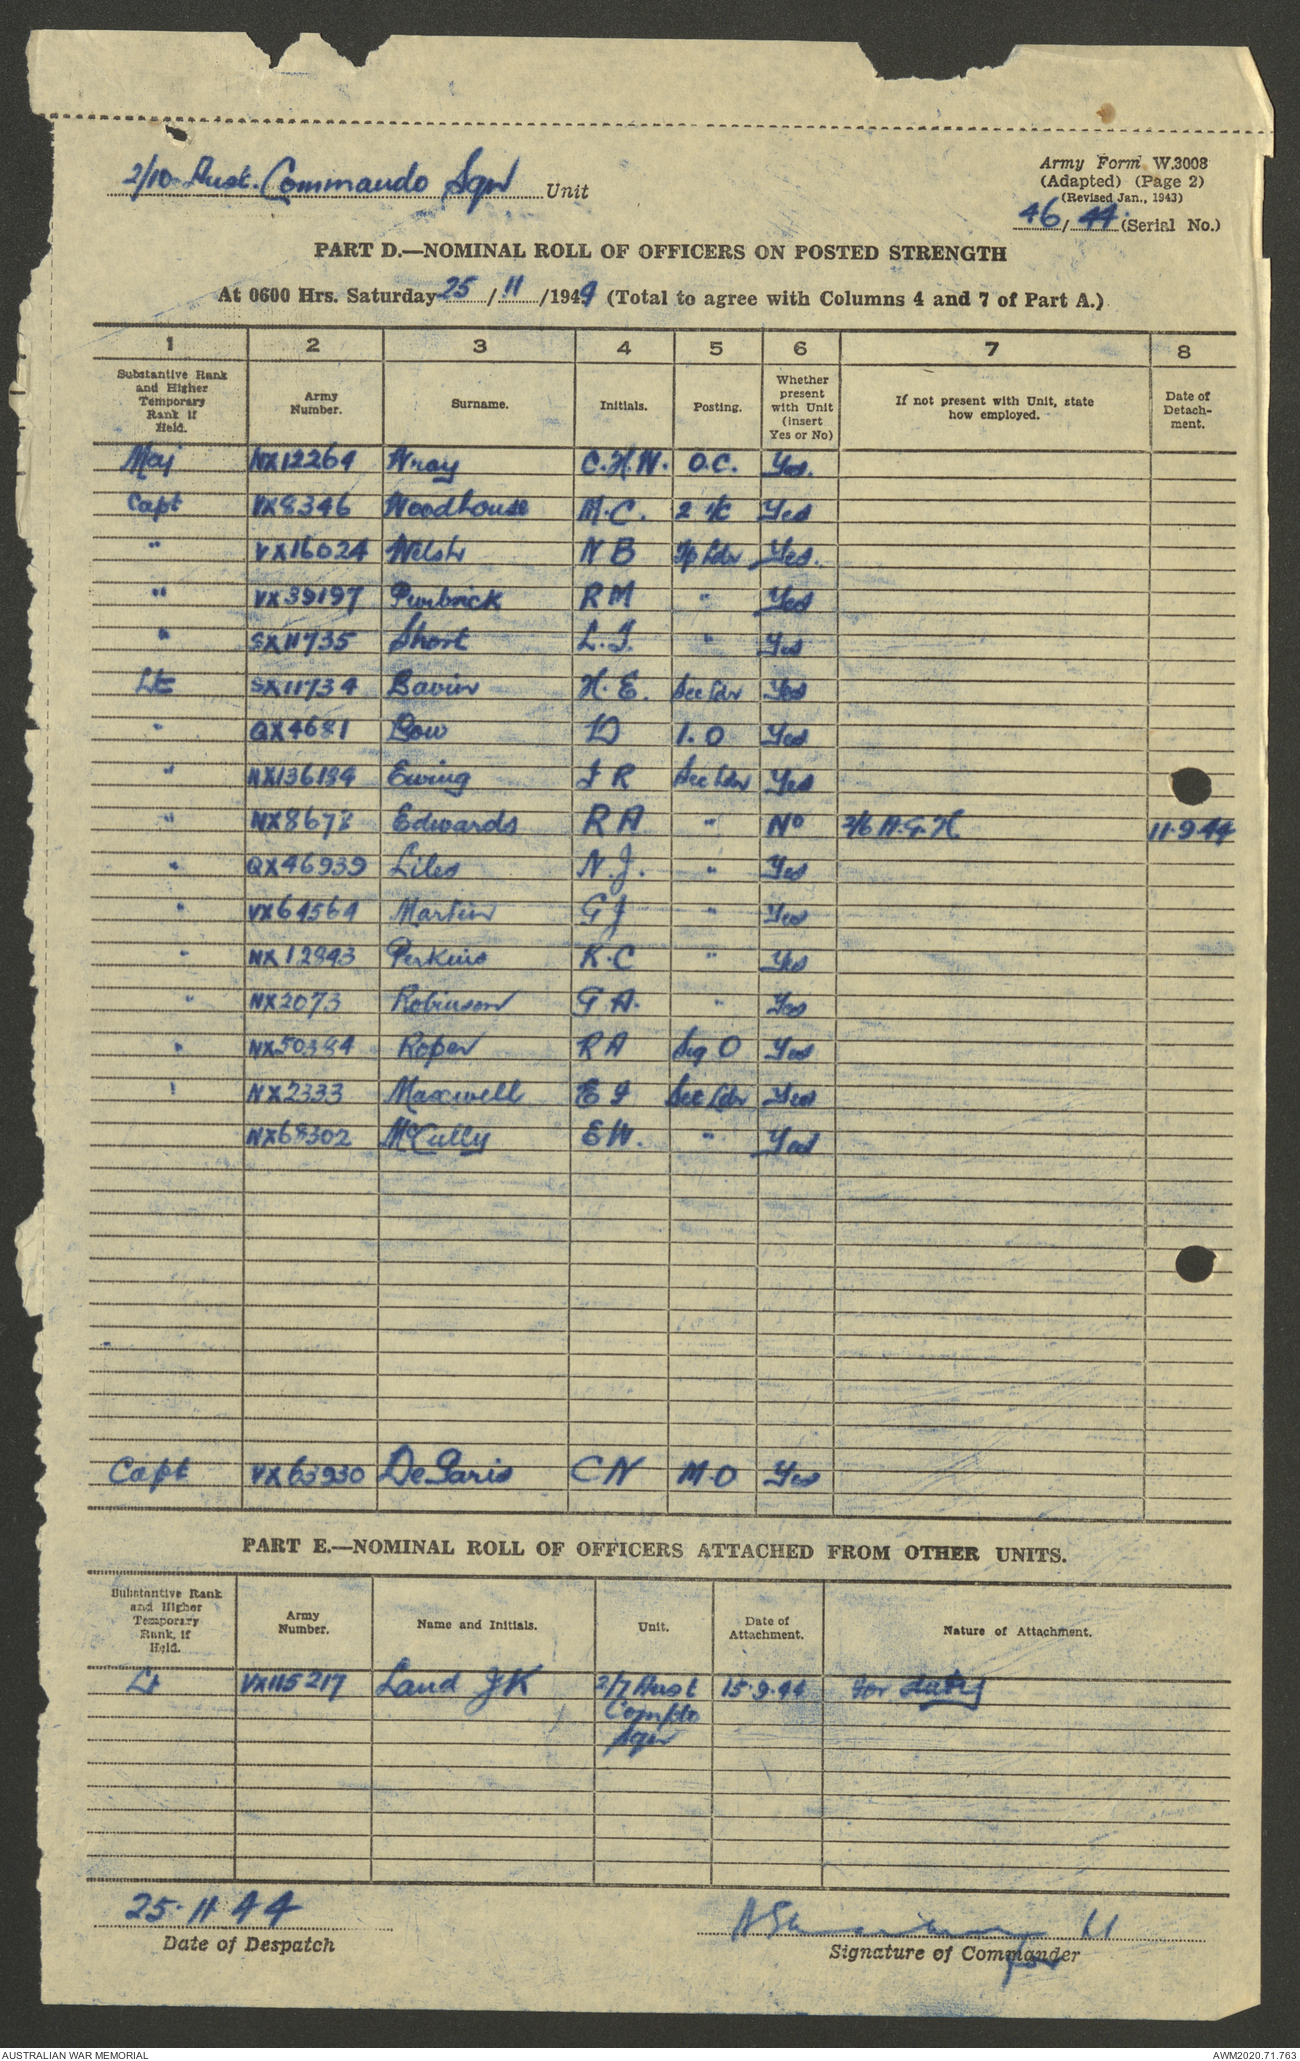 2/10 Aust. Commando Sqn Unit
Army Form W.3008
(Adapted) (Page 2)
(Revised Jan., 1943)
46/44. (Serial No.)
PART D.—NOMINAL ROLL OF OFFICERS ON POSTED STRENGTH
At 0600 Hrs. Saturday 25/11/1944 (Total to agree with Columns 4 and 7 of Part A.)
1 2 3 4 5 6 7 8
Substantive Rank and Higher Temporary Rank if Held. Army Number. Surname. Initials. Posting. Whether present with Unit (insert Yes or No) If not present with Unit, state how employed. Date of Detach-ment.
Maj NX12264 Wray C.H.W. O.C. Yes.
Capt VX8346 Woodhouse M.C. 2 i/c Yes
" VX16024 Welsh N B Tp Ldr Yes.
" VX39197 Purbrick R M " Yes
" SX11735 Short L. " Yes
Lt SX11734 Bavin H. E. Sec Ldr Yes
" QX4681 Bow D I. O Yes
" NX136184 Ewing R Sec Ldr Yes
" NX8678 Edwards R A " No 2/6 A.G.H 11.9.44
" QX46939 Liles N. J. " Yes
" VX64564 Martin G J " Yes
" NX12843 Perkins K. C " Yes
" NX2073 Robinson G A. " Yes
" NX50384 Roper R A Sig O Yes
" NX2333 Maxwell E Sec Ldr Yes
NX68302 McCully E W. " Yes
Capt VX63930 De Garis C N M.O Yes
PART E.—NOMINAL ROLL OF OFFICERS ATTACHED FROM OTHER UNITS.
Substantive Rank and Higher Temporary Rank, if Held. Army Number. Name and Initials. Unit. Date of Attachment. Nature of Attachment.
Lt VX115217 Land J K 2/7 Aust 15.9.44 For duty
Comdo
Sqn
25.11.44
Date of Despatch
Lt
Signature of Commander
for
AUSTRALIAN WAR MEMORIAL
AWM2020.71.763